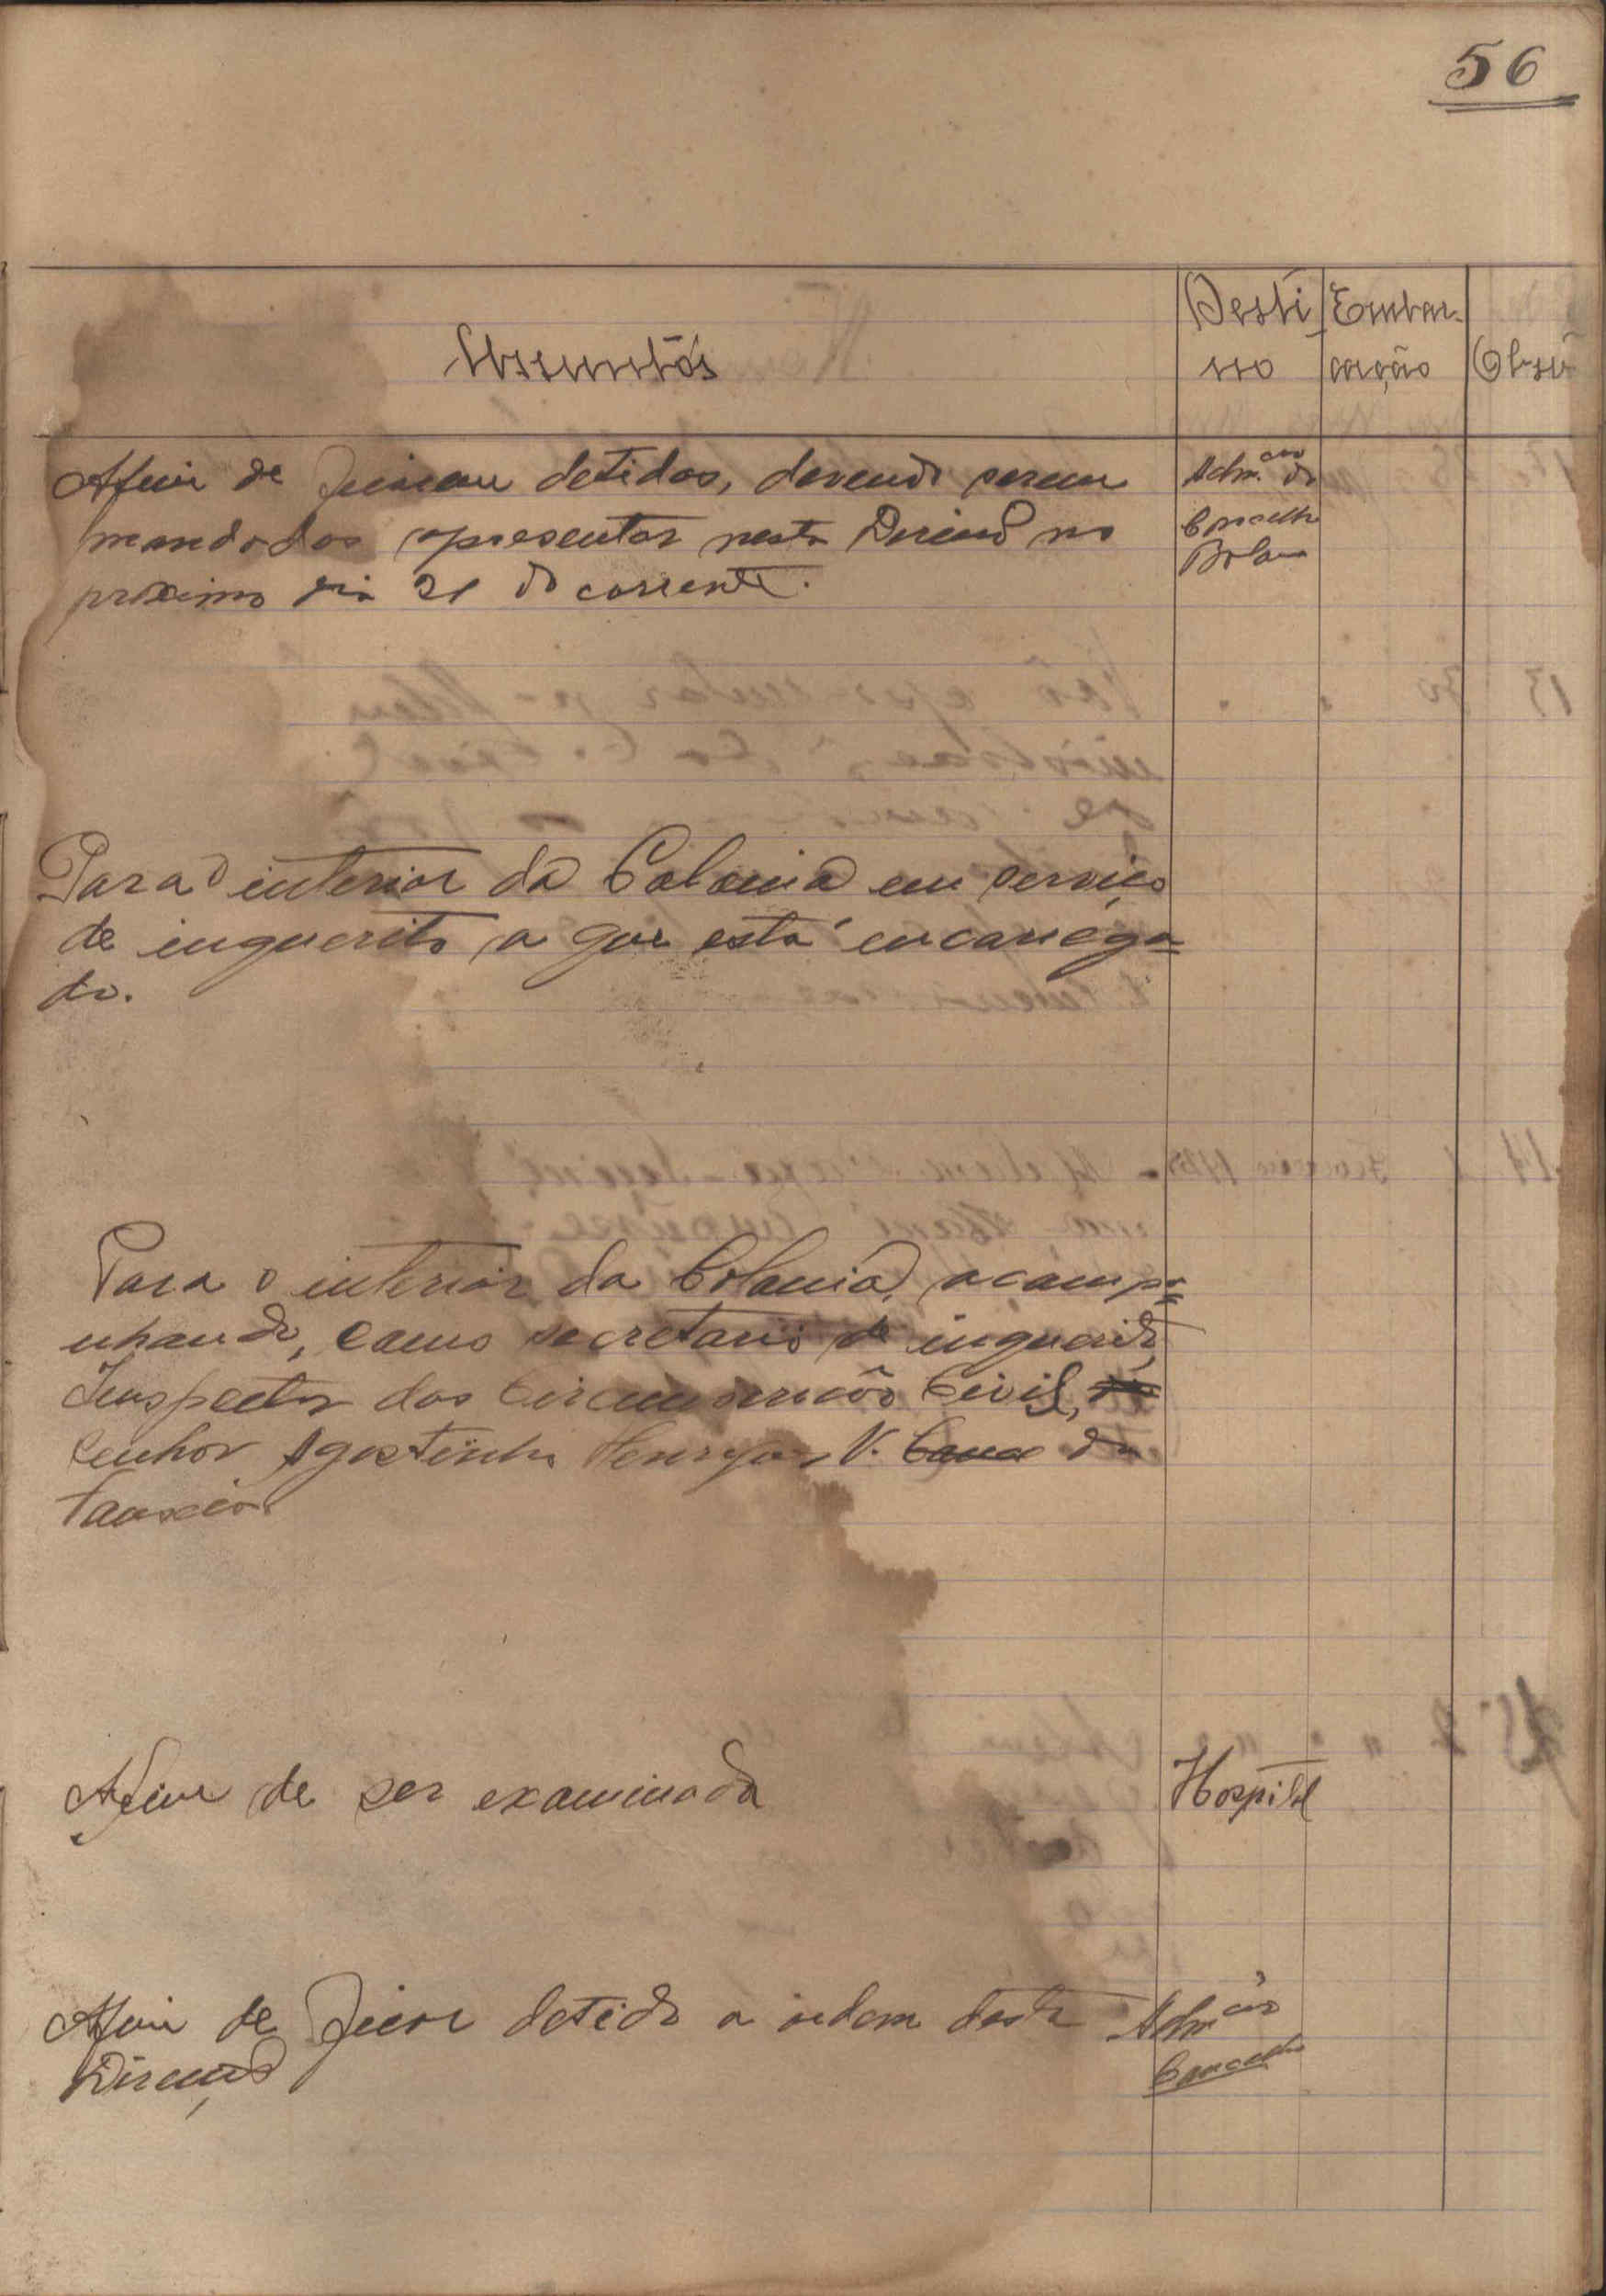 56
Assuntos
Desti-
no
Embar-
cação
Obser
Afim de ficarem detidos, devendo serem
mandados apresentar nesta Direcção no
próximo dia 21 do corrente.
Adm.ção do
Concelho
Bolama
Para o interior da Colonia em serviço
de inquerito a que está encarrega=
do.
Para o interior da Colonia, acompa=
nhando, como secretario de inquerito,
Inspector das Circunscrições Civil,
Senhor Agostinho Henrique V. da
Afim de ser examinada
Hospital
Afim de ficar detido a ordem desta
Direcção
Adm.ção
Concelho